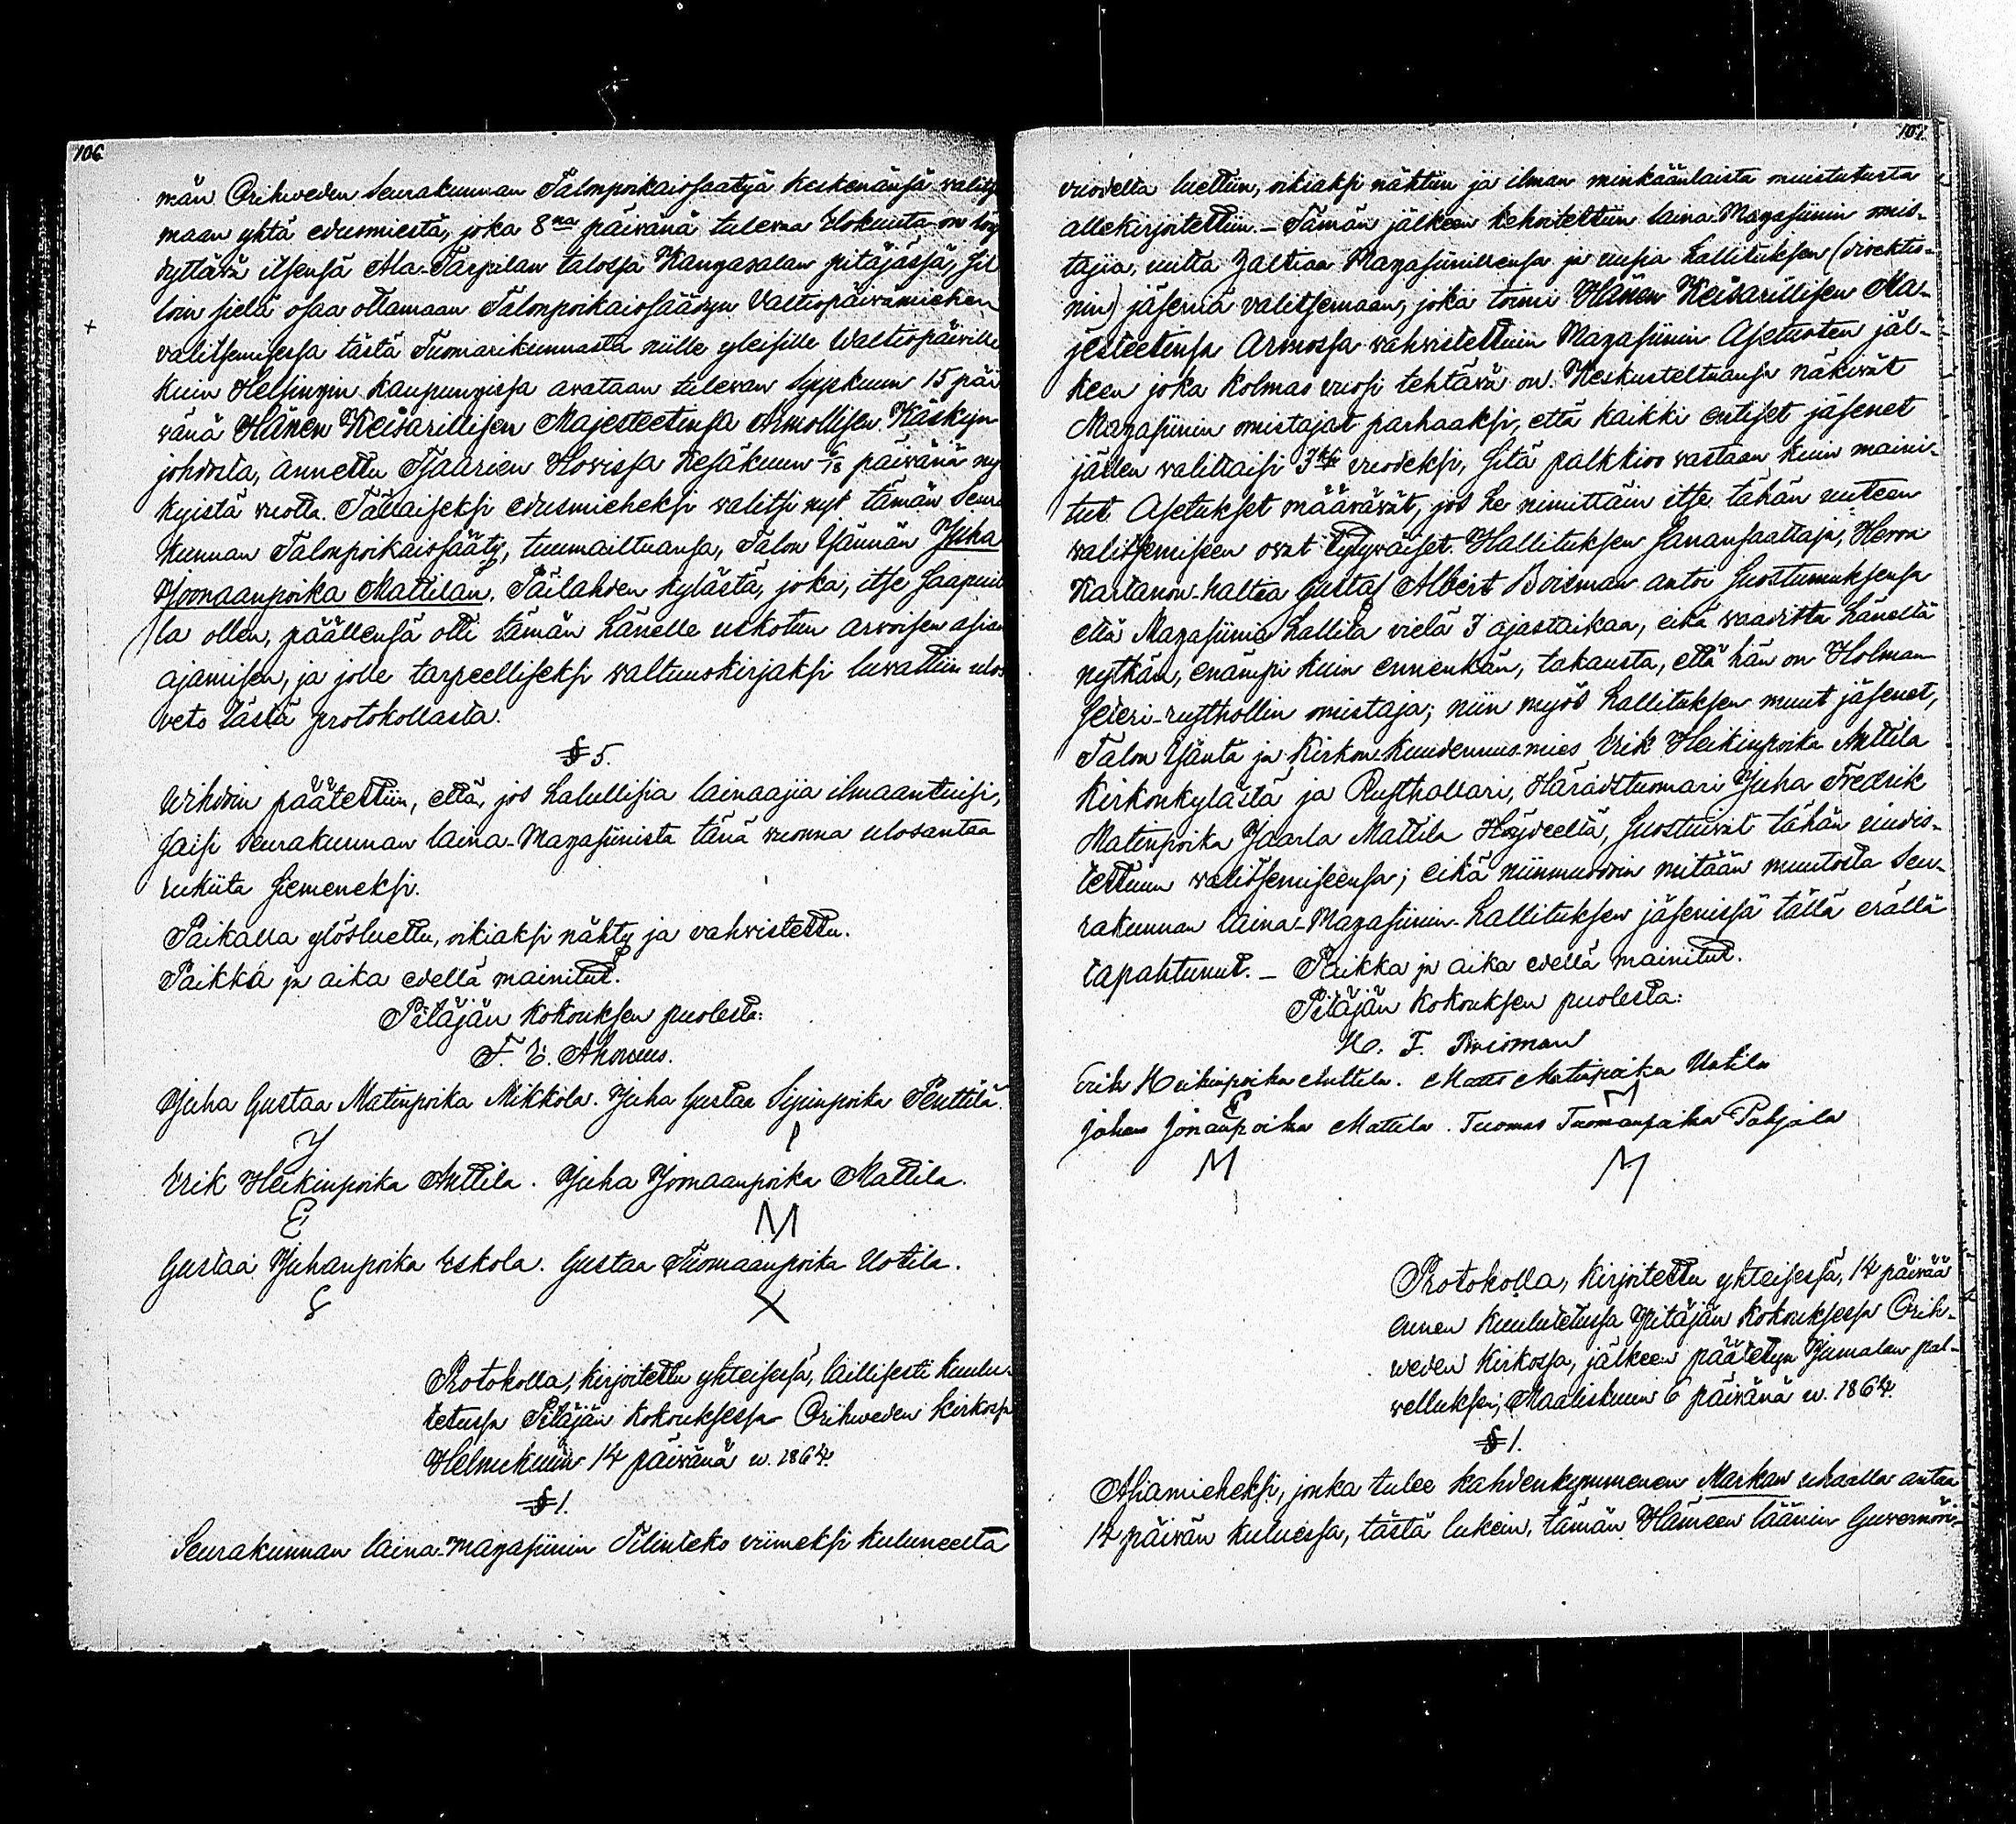 106
män Orihweden Seurakunnan Talonpoikaissäätyä keskenänsä walitse
maan yhtä edusmiestä, joka 8na päivänä tulevaa Elokuuta on löy
dyttävä itsensä Ala-Tarpilan talossa Kangasalan pitäjässä, sil
loin sielä osaa ottamaan Talonpoikaissäädyn Valtiopäivämiehen
valitsemisessa tästä Tuomarikunnasta niille yleisille Waltiopäiville
kuin Helsingin kaupungissa avataan tulevan Syyskuun 15 päi
vänä Hänen Keisarillisen Majesteetinsa Armollisen Käskyn
johdosta, annettu Tsaarien Hovissa Kesäkuun 6/18 päivänä ny
kyistä vuotta. Tällaiseksi edusmieheksi valitsi nyt tämän Seura
kunnan Talonpoikaissääty, tuumailtuansa, Talon Isännän Juha
Joonaanpoika Mattilan, Päilahden kylästä, joka, itse saapuil
la ollen, päällensä otti tämän hänelle uskotun arvoisen asian
ajamisen, ja jolle tarpeelliseksi waltuuskirjaksi luvattiin ulos
veto tästä protokollasta.
§ 5.
Wihdoin päätettiin, että, jos halullisia lainaajia ilmaantuisi,
saisi Seurakunnan laina-Magasiinista tänä vuonna ulosantaa
rukiita siemeneksi.
Paikalla ylösluettu, oikiaksi nähty ja vahvistettu.
Paikka ja aika edellä mainitut.
Pitäjän kokouksen puolesta:
F. E. Ahonius.
Juha Gustaa Matinpoika Mikkola. Juha Gustaa Sipinpoika Penttilä.
Erik Heikinpoika Anttila. Juha Joonaanpoika Mattila.
E M
Gustaa Juhanpoika Eskola. Gustaa Tuomaanpoika Uotila.
X
Protokolla, kirjoitettu yhteisessä, laillisesti kuulu-
tetussa Pitäjän kokouksessa Orihweden kirkossa
Helmikuun 14 päivänä w. 1864.
§ 1.
Seurakunnan laina-magasiinin Tilinteko viimeksi kuluneelta
107.
vuodelta luettiin, oikiaksi nähtiin ja ilman minkäänlaista muistutusta
allekirjoitettiin. – Tämän jälkeen kehoitettiin laina-Magasiinin omis-
tajia, uutta haltiaa Magasiinillensa ja uusia hallituksen (direktio-
nin) jäseniä valitsemaan, joka toimi Hänen Keisarillisen Ma-
jesteetinsa Armossa vahvistettuin Magasiinin Asetusten jäl-
keen joka kolmas vuosi tehtävä on. Keskusteltuansa näkivät
Magasiinin omistajat parhaaksi, että kaikki entiset jäsenet
jällen valittaisi 3ksi vuodeksi, sitä palkkioo vastaan kuin maini-
tut Asetukset määräävät, jos he nimittäin itse tähän uuteen
valitsemiseen ovat tytyväiset. Hallituksen Sanansaattaja, Herra
Kartanon-haltia Gustaf Albert Boisman antoi suostumuksensa
että Magasiinia hallita vielä 3 ajastaikaa, eikä waadittu häneltä
nytkän, enämpi kuin ennenkän, takausta, että hän on Holman
seteri-rusthollin omistaja; niin myös hallituksen muut jäsenet,
Talon Isäntä ja kirkon-kuudennusmies Erik Heikinpoika Anttila
kirkonkylästä ja Rusthollari, Häradstuomari Juha Fredrik
Matinpoika Jaarla Mattila Höydeeltä, suostuivat tähän uudis-
tettuun valitsemiseensa; eikä niinmuodoin mitään muutosta Seu-
rakunnan laina-Magasiinin-hallituksen jäsenissä tällä erällä
tapahtunut. – Paikka ja aika edellä mainitut.
Pitäjän kokouksen puolesta:
Boisman
Erik Heikinpoika Anttila. Matts Matinpoika Uotila
E M
Johan Jonanpoika Mattila. Tuomas Tuomanpoika Pohjala
M M
Protokolla, kirjoitettu yhteisessä, 14 päivää
ennen kuulutetussa Pitäjän kokouksessa Orih-
weden kirkossa, jälkeen päätetyn Jumalan pal-
velluksen, Maaliskuun 6 päivänä w. 1864.
§ 1.
Asiamieheksi, jonka tulee kahdenkymmenen Markan uhalla antaa
14 päivän kuluessa, tästä lukein, tämän Hämeen läänin Guvernööri-